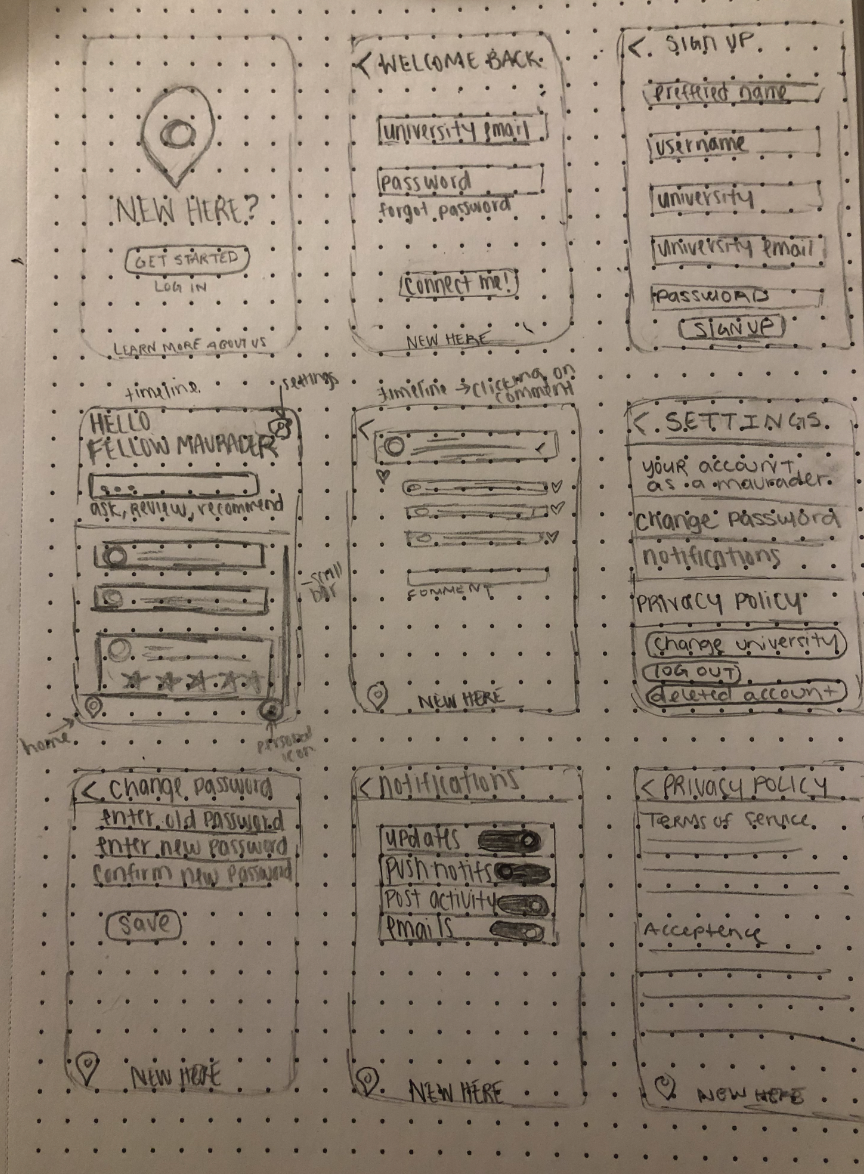 NEW HERE?
GET STARTED
LOG IN
LEARN MORE ABOUT US
< WELCOME BACK
university email
password
forgot password
connect me!
NEW HERE
< SIGN UP
preffered name
username
university
university email
password
SIGN UP
timeline
settings
HELLO
FELLOW MAURADER
ask, review, recommend
scroll
bar
home
personal
icon
timeline → clicking on
comment
<
COMMENT
NEW HERE
< SETTINGS
your account
as a maurader
change password
notifications
privacy policy
change university
log out
deleted account
< change password
enter old password
enter new password
confirm new password
save
NEW HERE
< notifications
updates
push notifs
post activity
emails
NEW HERE
< PRIVACY POLICY
Terms of Service
Acceptence
NEW HERE